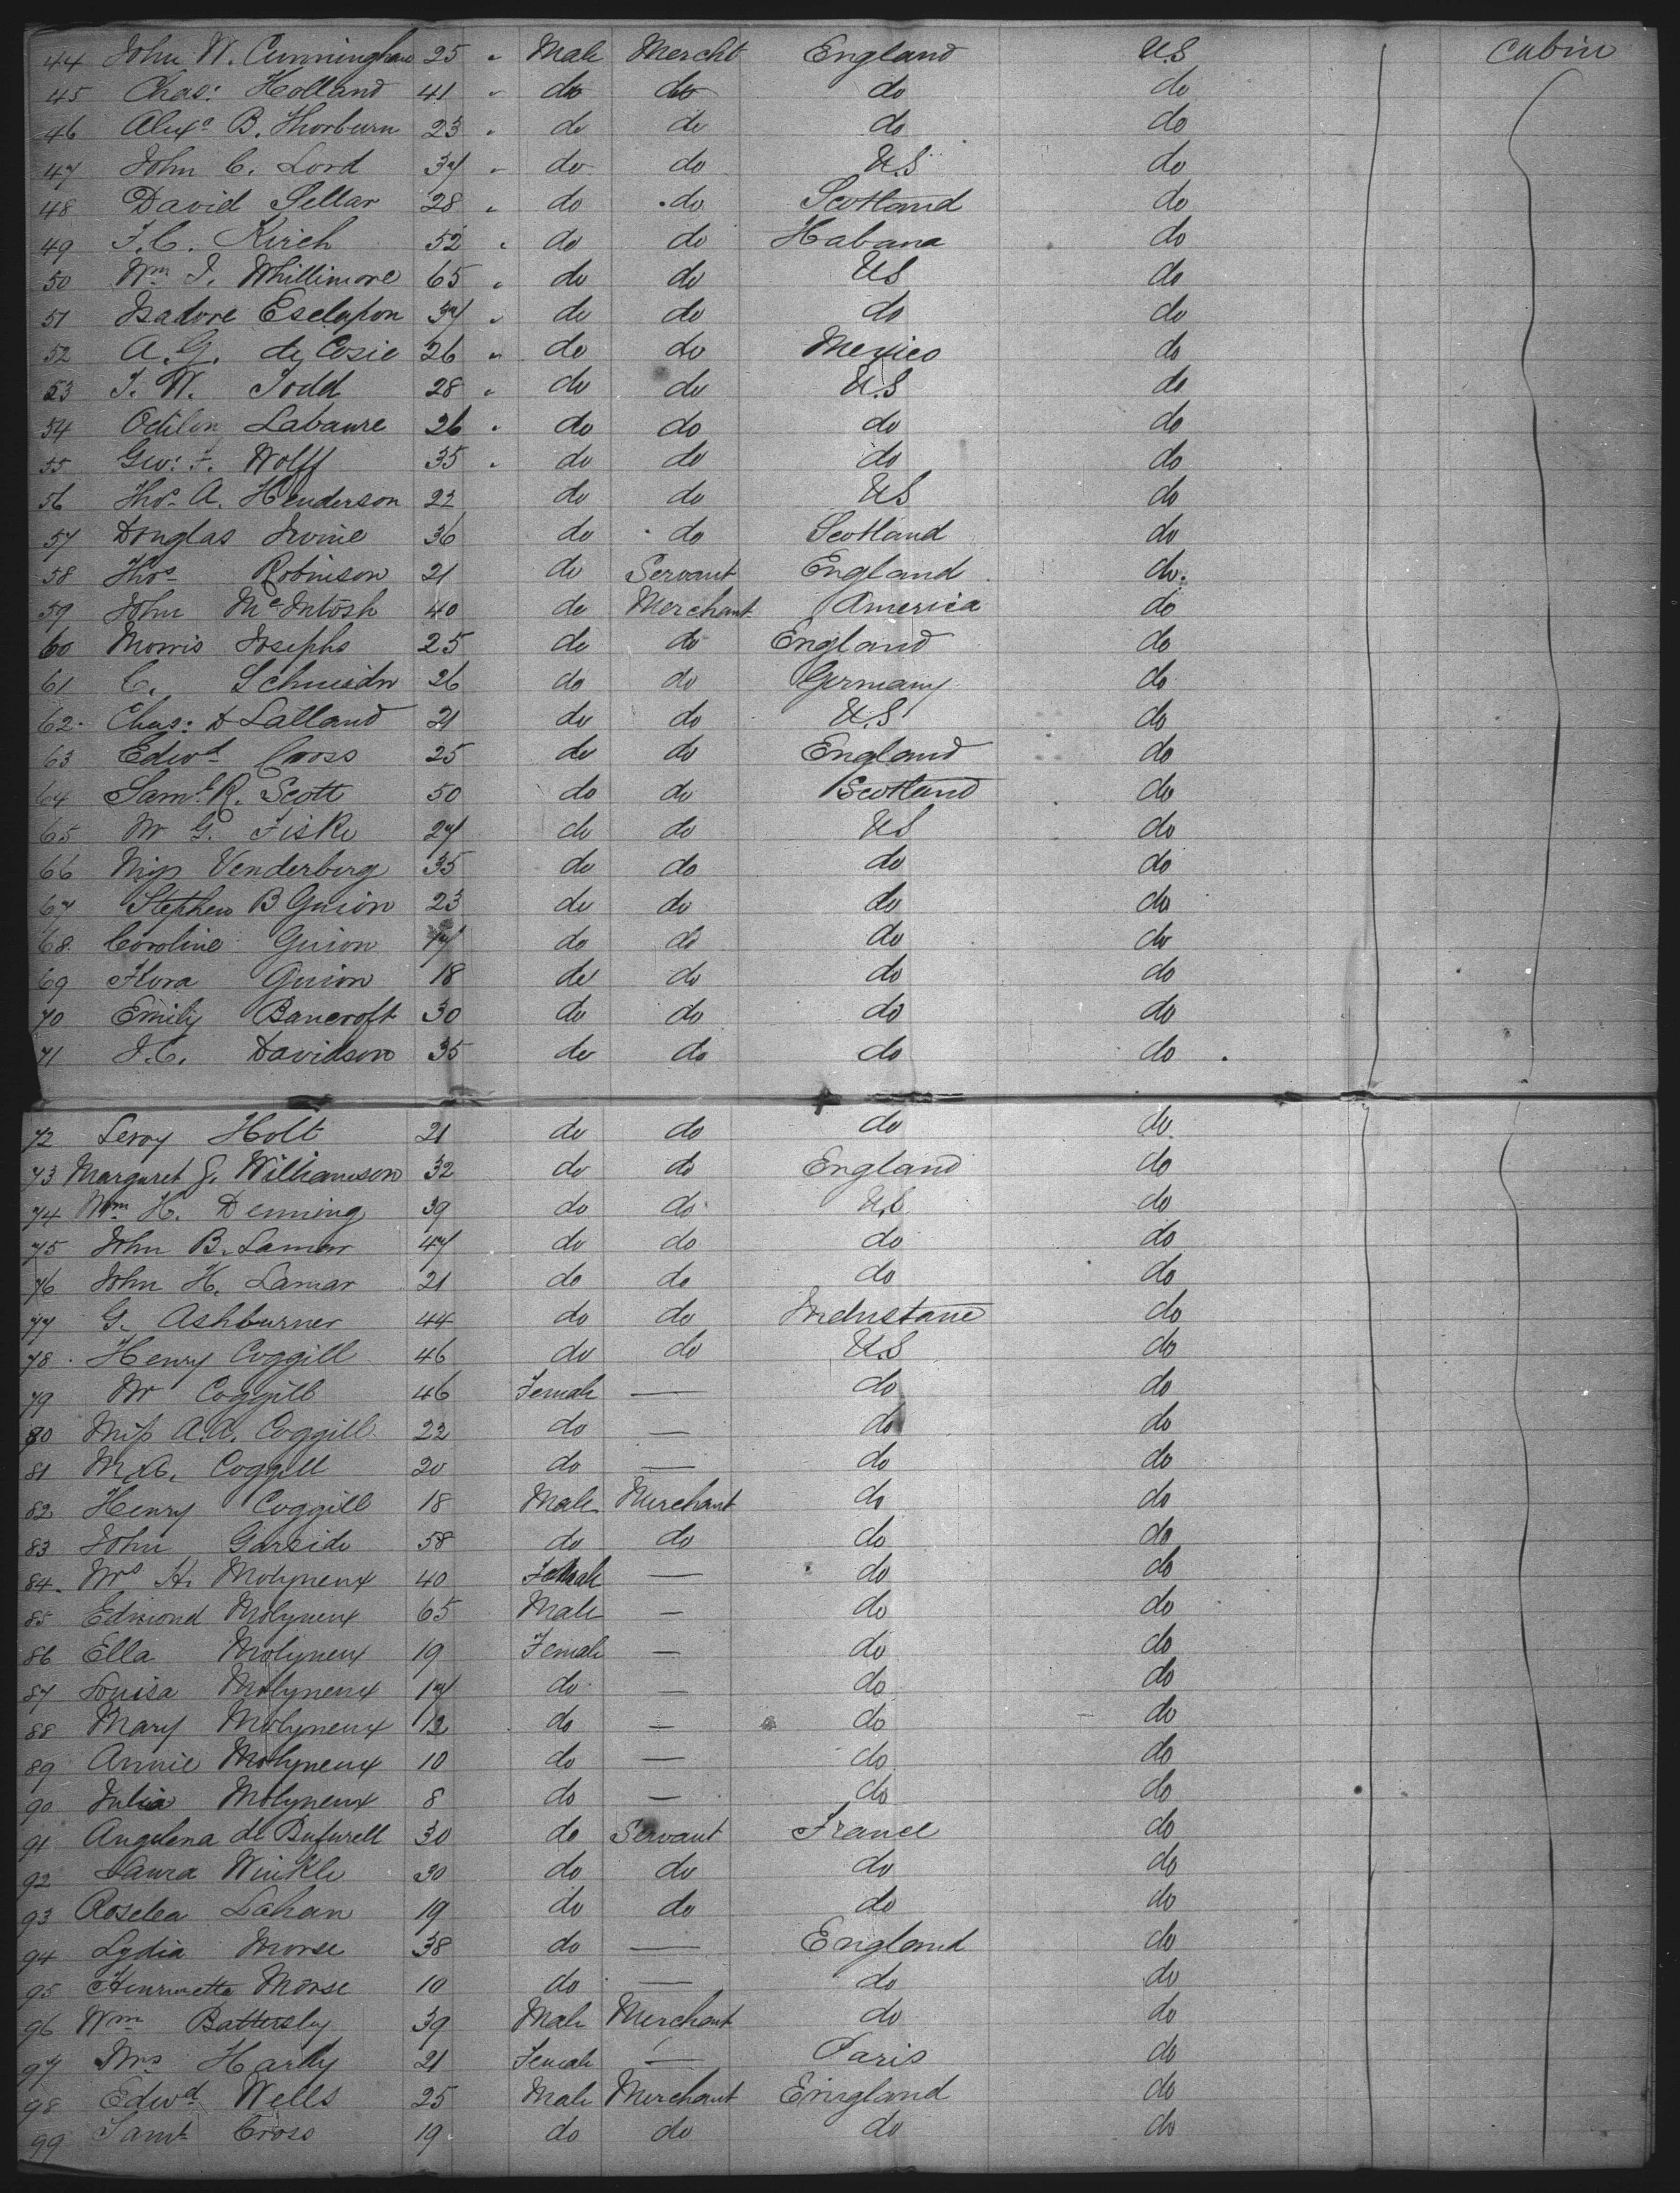 44 John W. Cunningham 25 " Male Mercht England U.S Cabin
45 Chas: Holland 41 " do do do do
46 Alexr B. Thorburn 23 " do do do do
47 John C. Lord 37 " do do U.S do
48 David Sellar 28 " do do Scotland do
49 F. C. Kirch 52 " do do Habana do
50 Wm I. Whillimore 65 " do do US do
51 Isadore Esclapon 37 " do do do do
52 A. G. de Cosie 26 " do do Mexico do
53 J. W. Todd 28 " do do U.S do
54 Odilon Labaure 26 " do do do do
55 Geo: F. Wolff 35 " do do do do
56 Thos A. Henderson 22 do do US do
57 Douglas Irvine 36 do do Scotland do
58 Thos Robinson 21 do Servant England do.
59 John McIntosh 40 do Merchant America do
60 Morris Josephs 25 do do England do
61 C. 26 do do Germany do
62 Chas: D Lalland 21 do do U.S do
63 Edwd Cross 25 do do England do
64 Saml R. Scott 50 do do Scotland do
65 W G. Fiske 27 do do US do
66 Miss Venderberg 35 do do do do
67 Stephen B Guion 23 do do do do
68 Coroline Guion do do do do
69 Flora Guion 18 do do do do
70 Emily Bancroft 30 do do do do
71 J. C. Davidson 35 do do do do
72 Leroy Holt 21 do do do do
73 Margaret J. Williamson 32 do do England do
74 Wm H. Denning 39 do do U.S do
75 John B. Lamar 47 do do do do
76 John H. Lamar 21 do do do do
77 G. Ashburner 44 do do Industane do
78 Henry Coggill 46 do do U.S do
79 Mr Coggill 46 Female — do do
80 Miss A. A. Coggill 22 do — do do
81 Coggill 20 do — do do
82 Henry Coggill 18 Male Merchant do do
83 John Garside 58 do do do do
84 Mrs H. Molyneux 40 Female — do do
85 Edmond Molyneux 65 Male — do do
86 Ella Molyneux 19 Female — do do
87 Louisa Molyneux 17 do — do do
88 Mary Molyneux 12 do — do do
89 Annie Molyneux 10 do — do do
90 Julia Molyneux 8 do — do do
91 Angelena de Bufurell 30 do Servant France do
92 Laura Winkle 30 do do do do
93 Roselea Lahan 19 do do do do
94 Lydia Morse 38 do — England do
95 Henrinetta Morse 10 do — do do
96 Wm Battersby 39 Male Merchant do do
97 Mrs Harly 21 Female — Paris do
98 Edwd Wells 25 Male Merchant England do
99 Saml Cross 19 do do do do